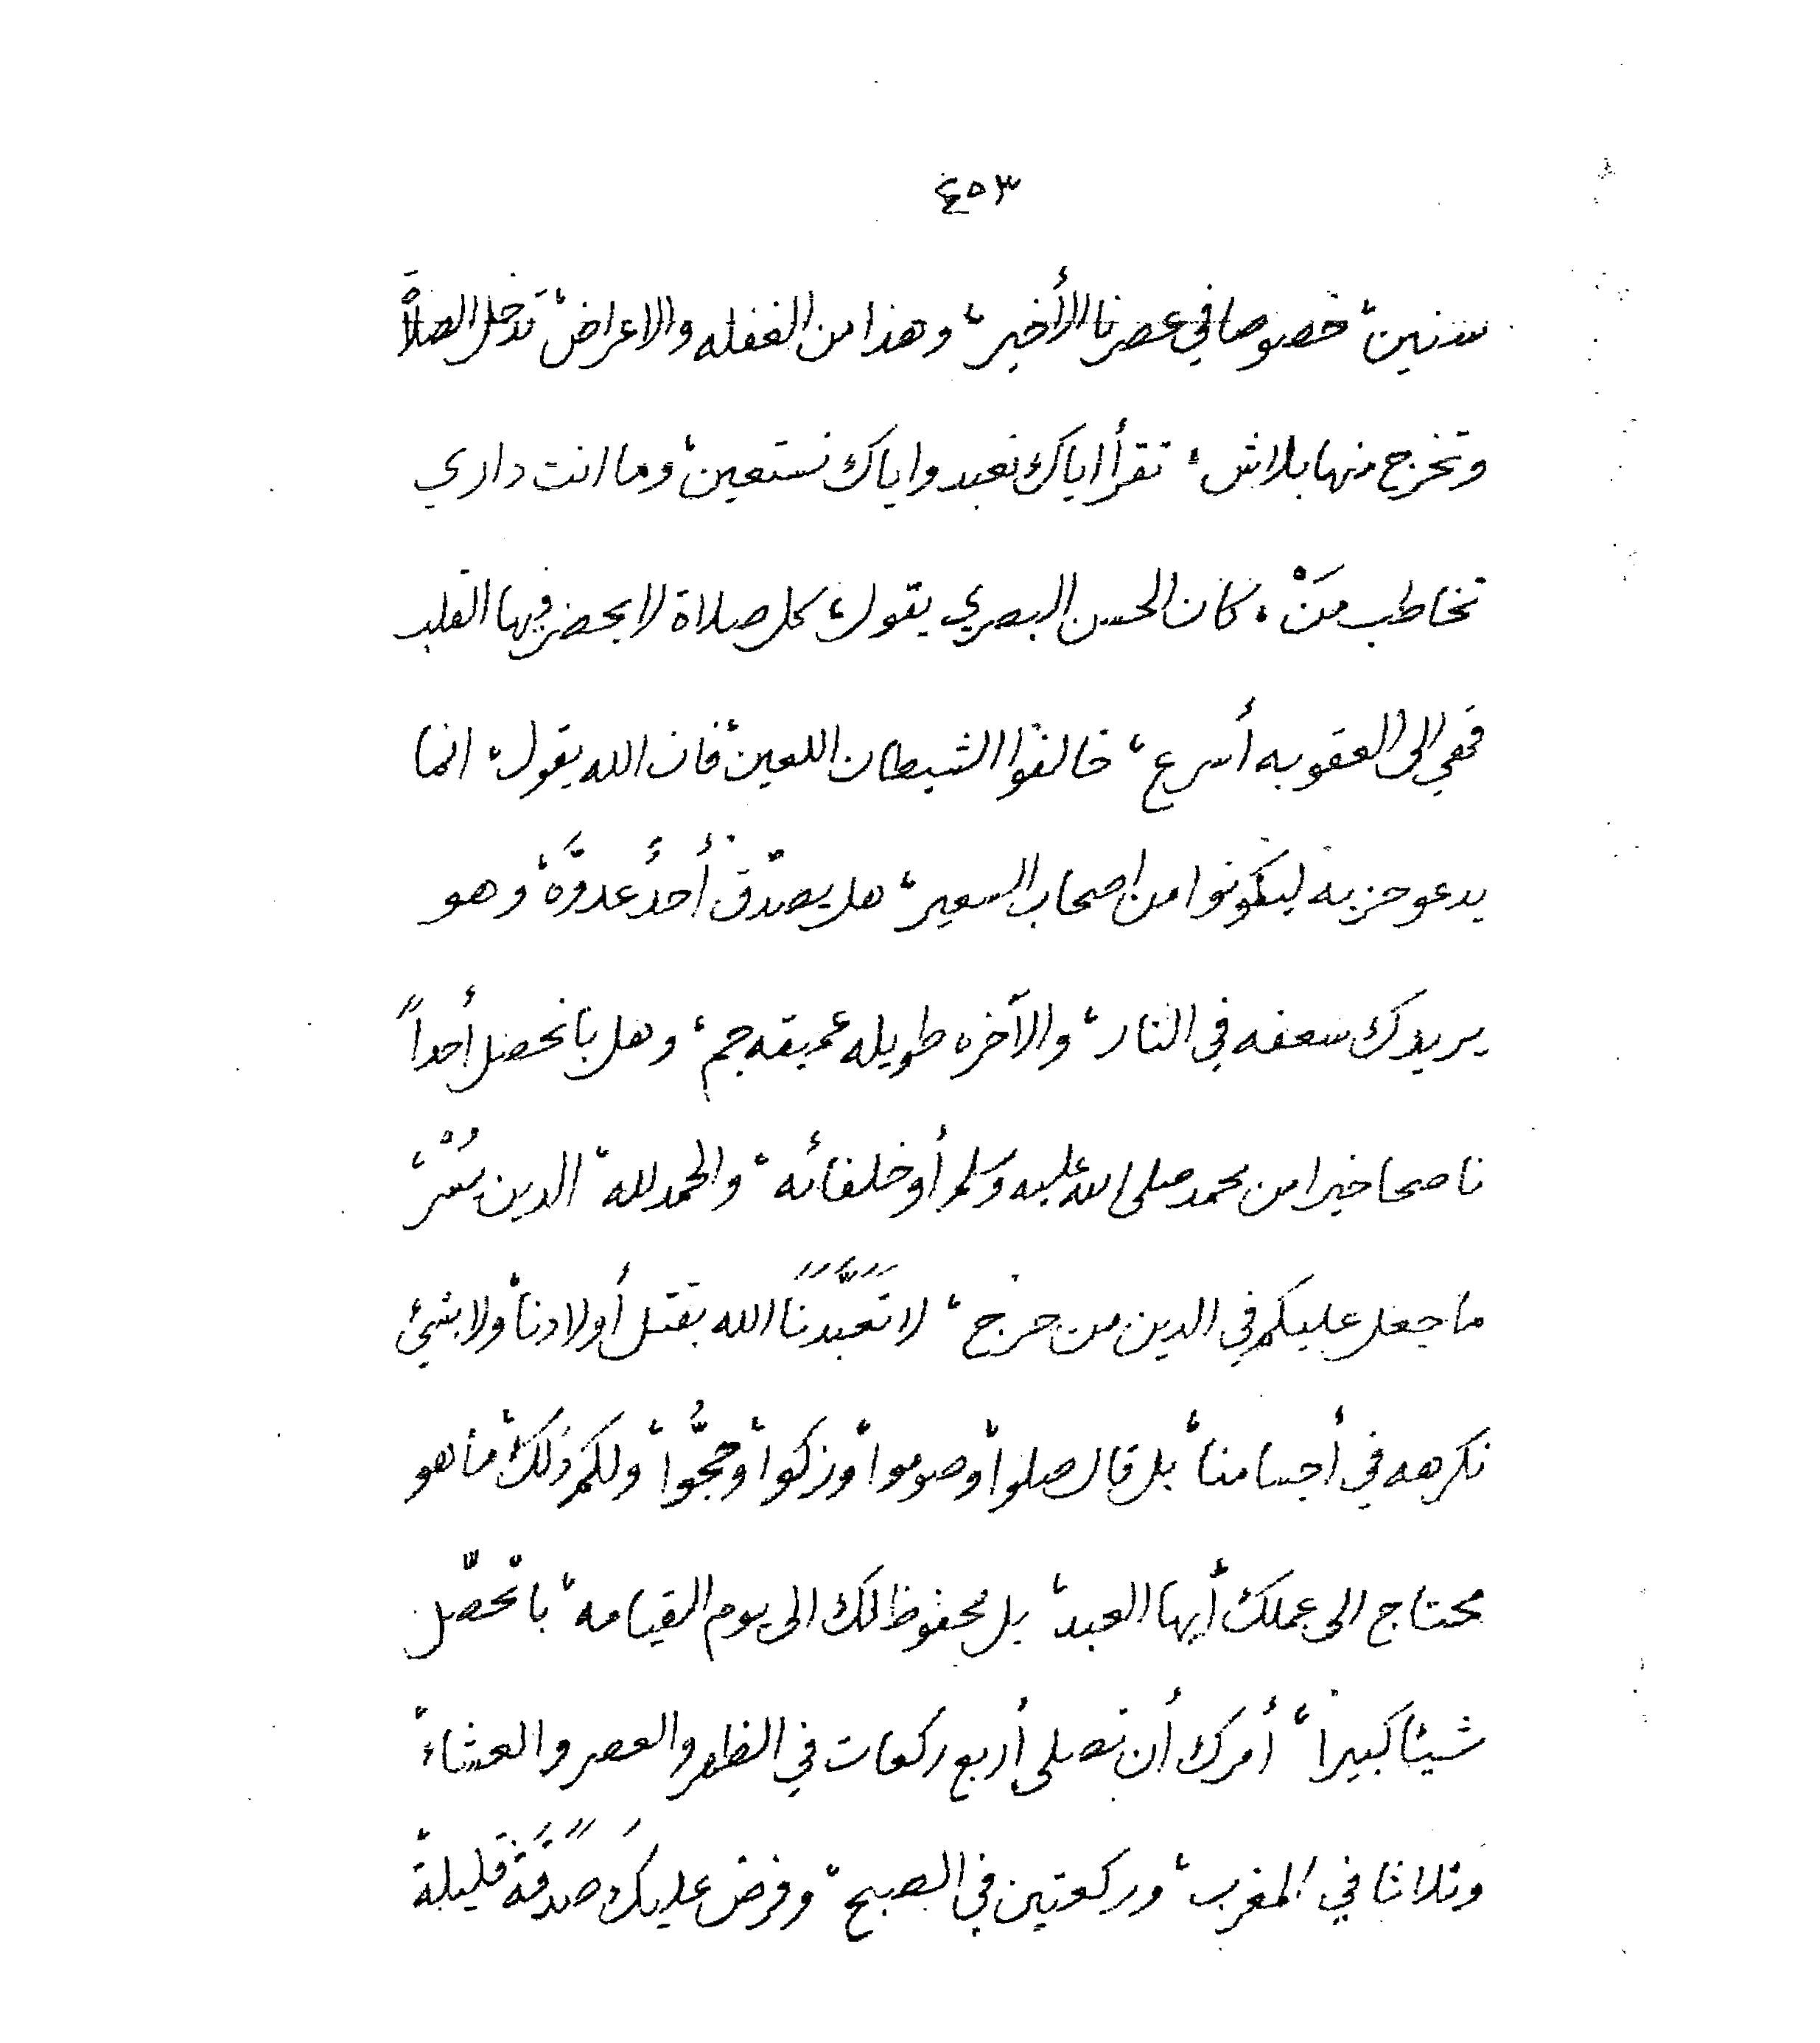 ٤٥٣
سنين، خصوصا في عصرنا الأخير، وهذا من الغفله والاعراض، تدخل الصلاة
وتخرج منها بلاش، تقرأ اياك نعبد واياك نستعين، وما انت داري
تخاطب مَنْ، كان الحسن البصري يقول، كل صلاة لا يحضر فيها القلب
فهي الى العقوبه أسرع، خالفوا الشيطان اللعين، فان الله يقول، انما
يدعو حزبه ليكونوا من اصحاب السعير، هل يصدّق أحدٌ عدوَّه، وهو
يريدك سعفه في النار، والآخره طويله عميقه جم، وهل باتحصل أحداً
ناصحا خيرا من محمد صلى الله عليه وسلم أو خلفائه، والحمد لله، الدين يُسْر،
ما جعل عليكم في الدين من حرج، لا تَعَبَّدَنَا الله بقتل أولادنا، ولا بشيئ
نكرهه في أجسامنا، بل قال صلوا، وصوموا، وزكوا، وحجُّوا، ولكم ذلك، ما هو
محتاج الى عملك أيها العبد، بل محفوظ لك الى يوم القيامه، باتحصّل
شيئا كبيرا، أمرك أن تصلى أربع ركعات في الظهر والعصر والعشاء،
وثلاثا في المغرب، وركعتين في الصبح، وفرض عليكَ صَدَقَةً قليلة